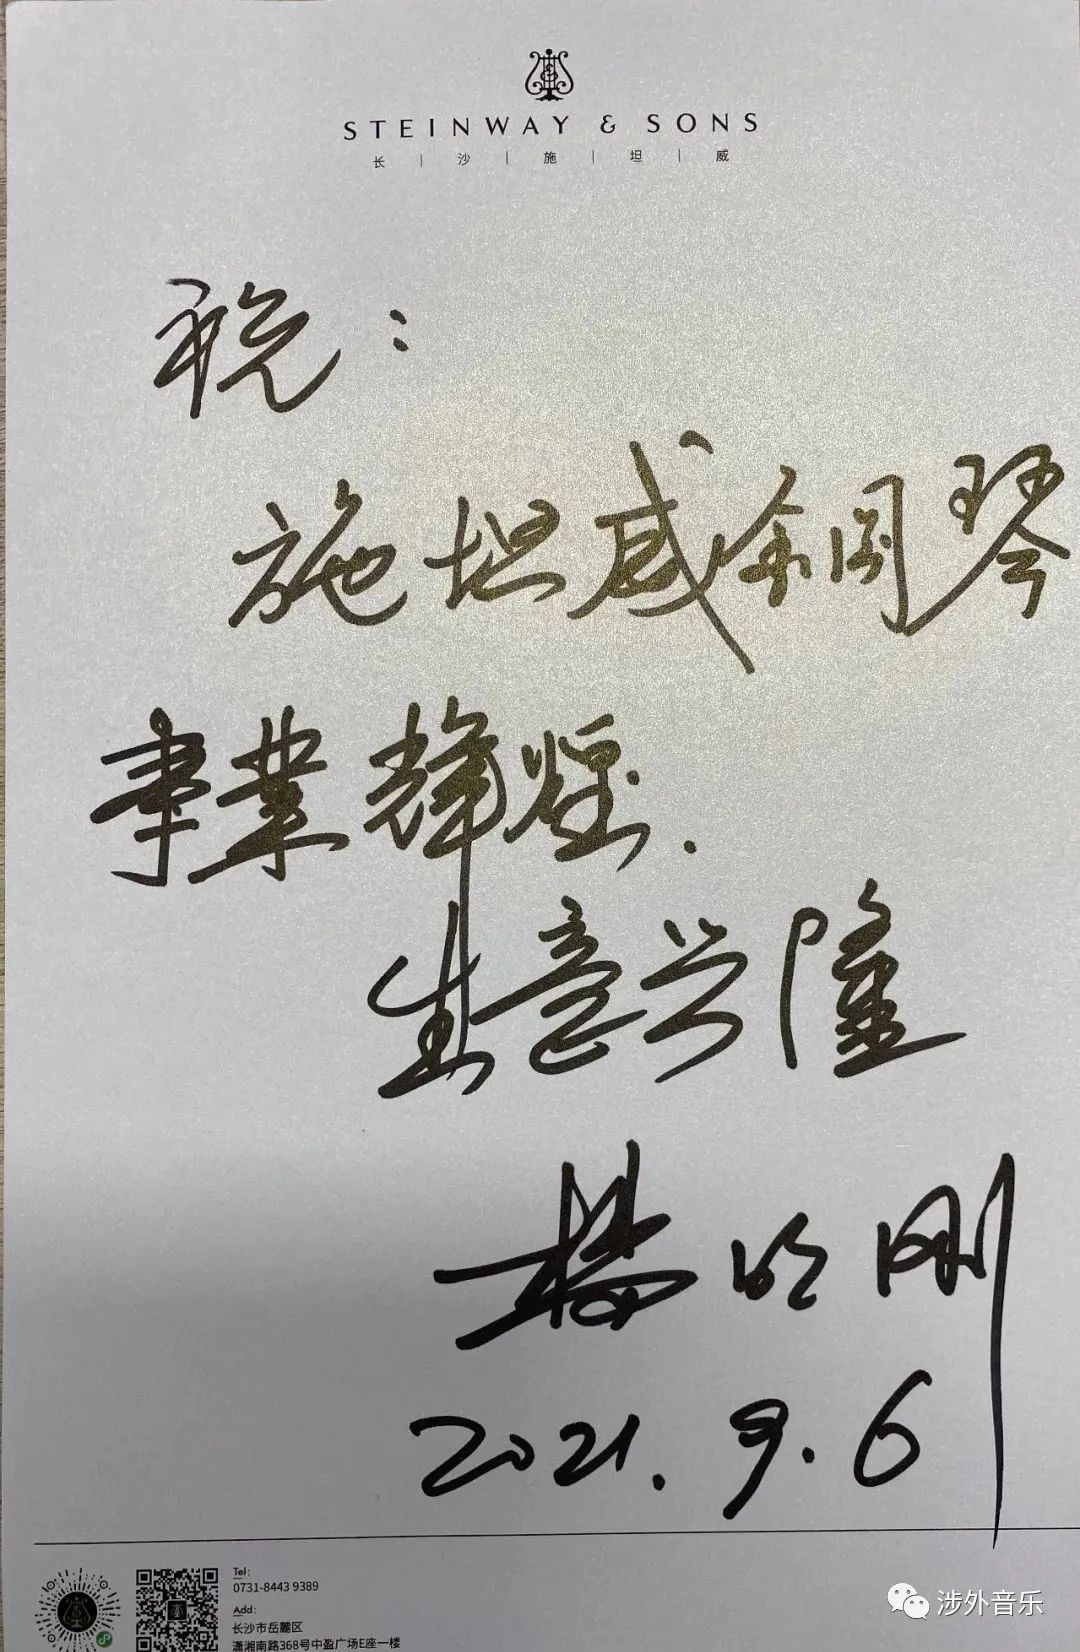 STEINWAY & SONS
长 | 沙 | 施 | 坦 | 威
祝：
施坦威钢琴
事業辉煌.
生意兴隆
楼巧刚
2021.9.6
Tel:
0731-8443 9389
Add:
长沙市岳麓区
潇湘南路368号中盈广场E座一楼
涉外音乐